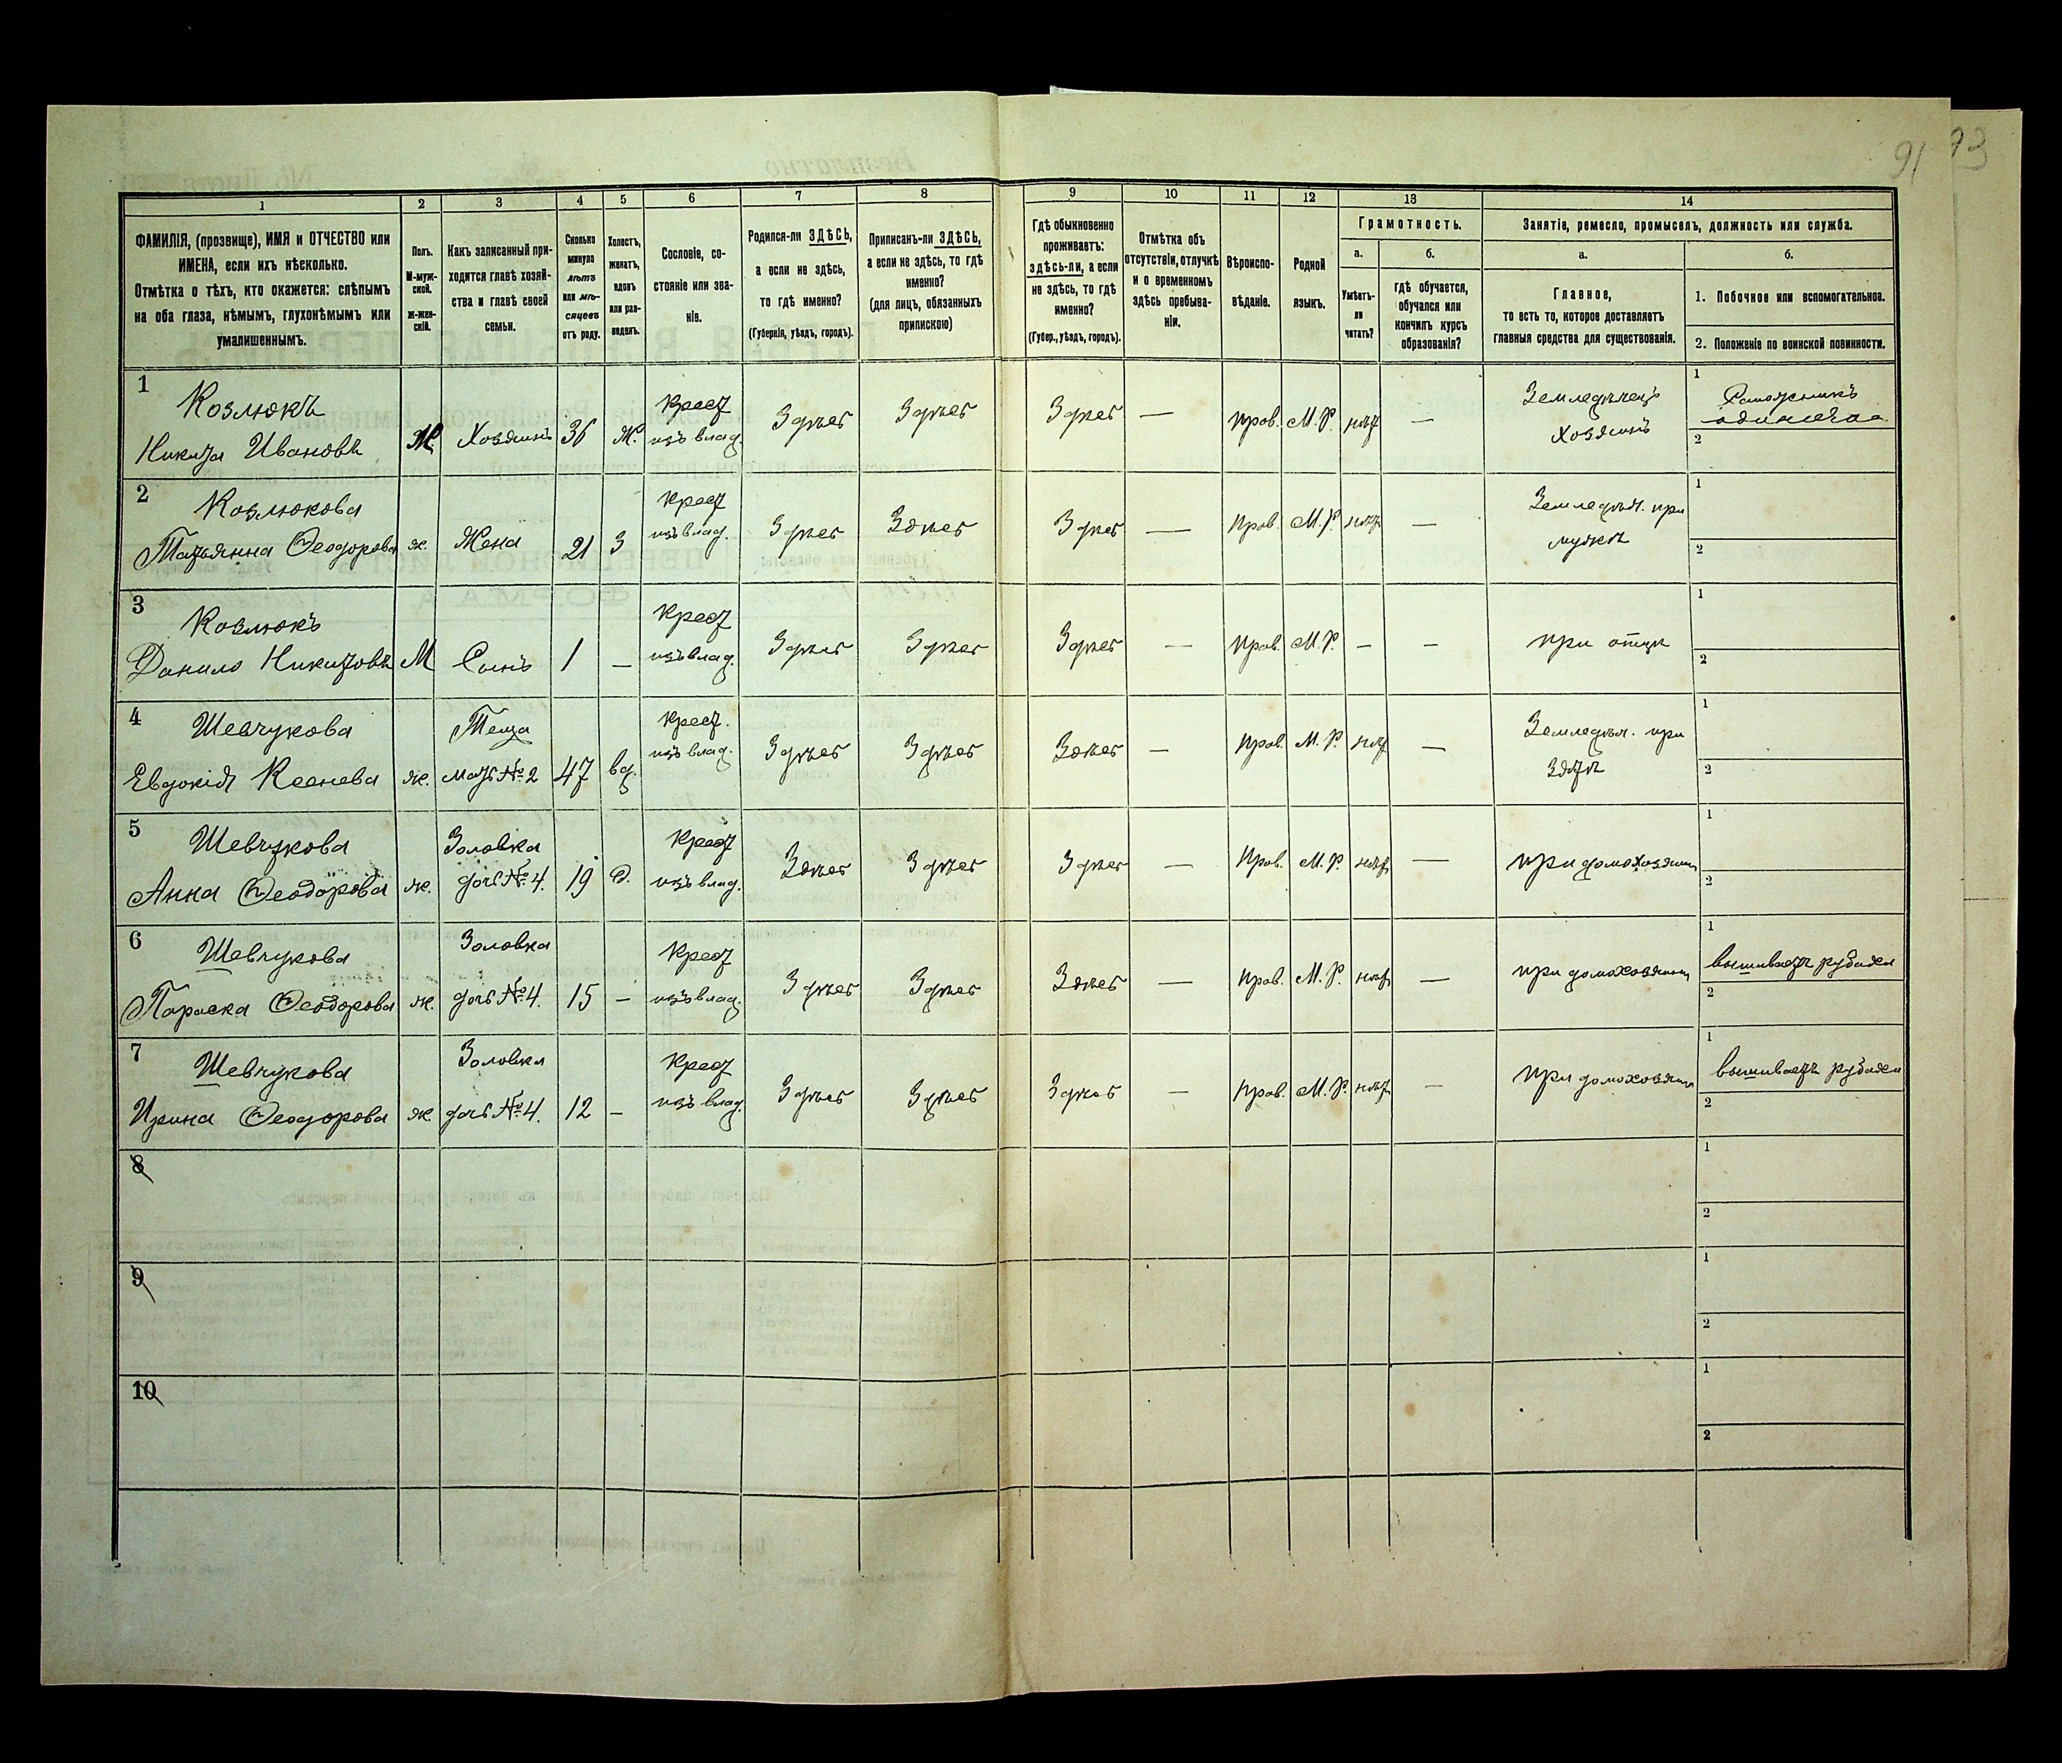 91 93
1 2 3 4 5 6 7 8 9 10 11 12 13 14
ФАМИЛІЯ, (прозвище), ИМЯ и ОТЧЕСТВО или
ИМЕНА, если ихъ нѣсколько.
Отмѣтка о тѣхъ, кто окажется: слѣпымъ
на оба глаза, нѣмымъ, глухонѣмымъ или
умалишеннымъ.
Полъ.
М-муж-
ской.
Ж-жен-
скій.
Какъ записанный при-
ходится главѣ хозяй-
ства и главѣ своей
семьи.
Сколько
минуло
лѣтъ
или мѣ-
сяцевъ
отъ роду.
Холостъ,
женатъ,
вдовъ
или раз-
веденъ.
Сословіе, со-
стояніе или зва-
ніе.
Родился-ли ЗДѢСЬ,
а если не здѣсь,
то гдѣ именно?
(Губернія, уѣздъ, городъ).
Приписанъ-ли ЗДѢСЬ,
а если не здѣсь, то гдѣ
именно?
(для лицъ, обязанныхъ
припискою)
Гдѣ обыкновенно
проживаетъ:
здѣсь-ли, а если
не здѣсь, то гдѣ
именно?
(Губер., уѣздъ, городъ).
Отмѣтка объ
отсутствіи, отлучкѣ
и о временномъ
здѣсь пребыва-
ніи.
Вѣроиспо-
вѣданіе.
Родной
языкъ.
Грамотность.
а.
Умѣетъ-
ли
читать?
б.
гдѣ обучается,
обучался или
кончилъ курсъ
образованія?
Занятіе, ремесло, промыселъ, должность или служба.
а.
Главное,
то есть то, которое доставляетъ
главныя средства для существованія.
б.
1. Побочное или вспомогательное.
2. Положеніе по воинской повинности.
1
Козлюкъ
Никита Ивановъ М. Хозяинъ 36 Ж. Крест
изъ влад. Здѣсь Здѣсь Здѣсь — прав. М.Р. нѣт — Земледѣлецъ
хозяинъ
1
2
2
Козлюкова
Татьянна Ѳеодорова ж. Жена 21 З Крест
изъ влад. Здѣсь Здѣсь Здѣсь — прав. М.Р. нѣт — Земледѣл. при
мужѣ
1
2
3
Козлюкъ
Данило Никитовъ М Сынъ 1 — Крест
изъ влад. Здѣсь Здѣсь Здѣсь — прав. М.Р. — — при отцѣ
1
2
4
Шевчукова
Евдокія Ксенева ж. Теща
мать №2 47 вд. Крест.
изъ влад. Здѣсь Здѣсь Здѣсь — прав. М.Р. нѣт — Земледѣл. при
Зятѣ
1
2
5
Шевчукова
Анна Ѳеодорова ж. Золовка
дочь №4. 19 д. Крест
изъ влад. Здѣсь Здѣсь Здѣсь — Прав. М.Р. нѣт — при домохозяинѣ
1
2
6
Шевчукова
Параска Ѳеодорова ж. Золовка
дочь №4. 15 — Крест
изъ влад. Здѣсь Здѣсь Здѣсь — прав. М.Р. нѣт — при домохозяинѣ
1 вышиваетъ рубахи
2
7
Шевчукова
Ирина Ѳеодорова ж. Золовка
дочь №4. 12 — Крест
изъ влад. Здѣсь Здѣсь Здѣсь — прав. М.Р. нѣт — при домохозяинѣ
1 вышиваетъ рубахи
2
8
1
2
9
1
2
10
1
2